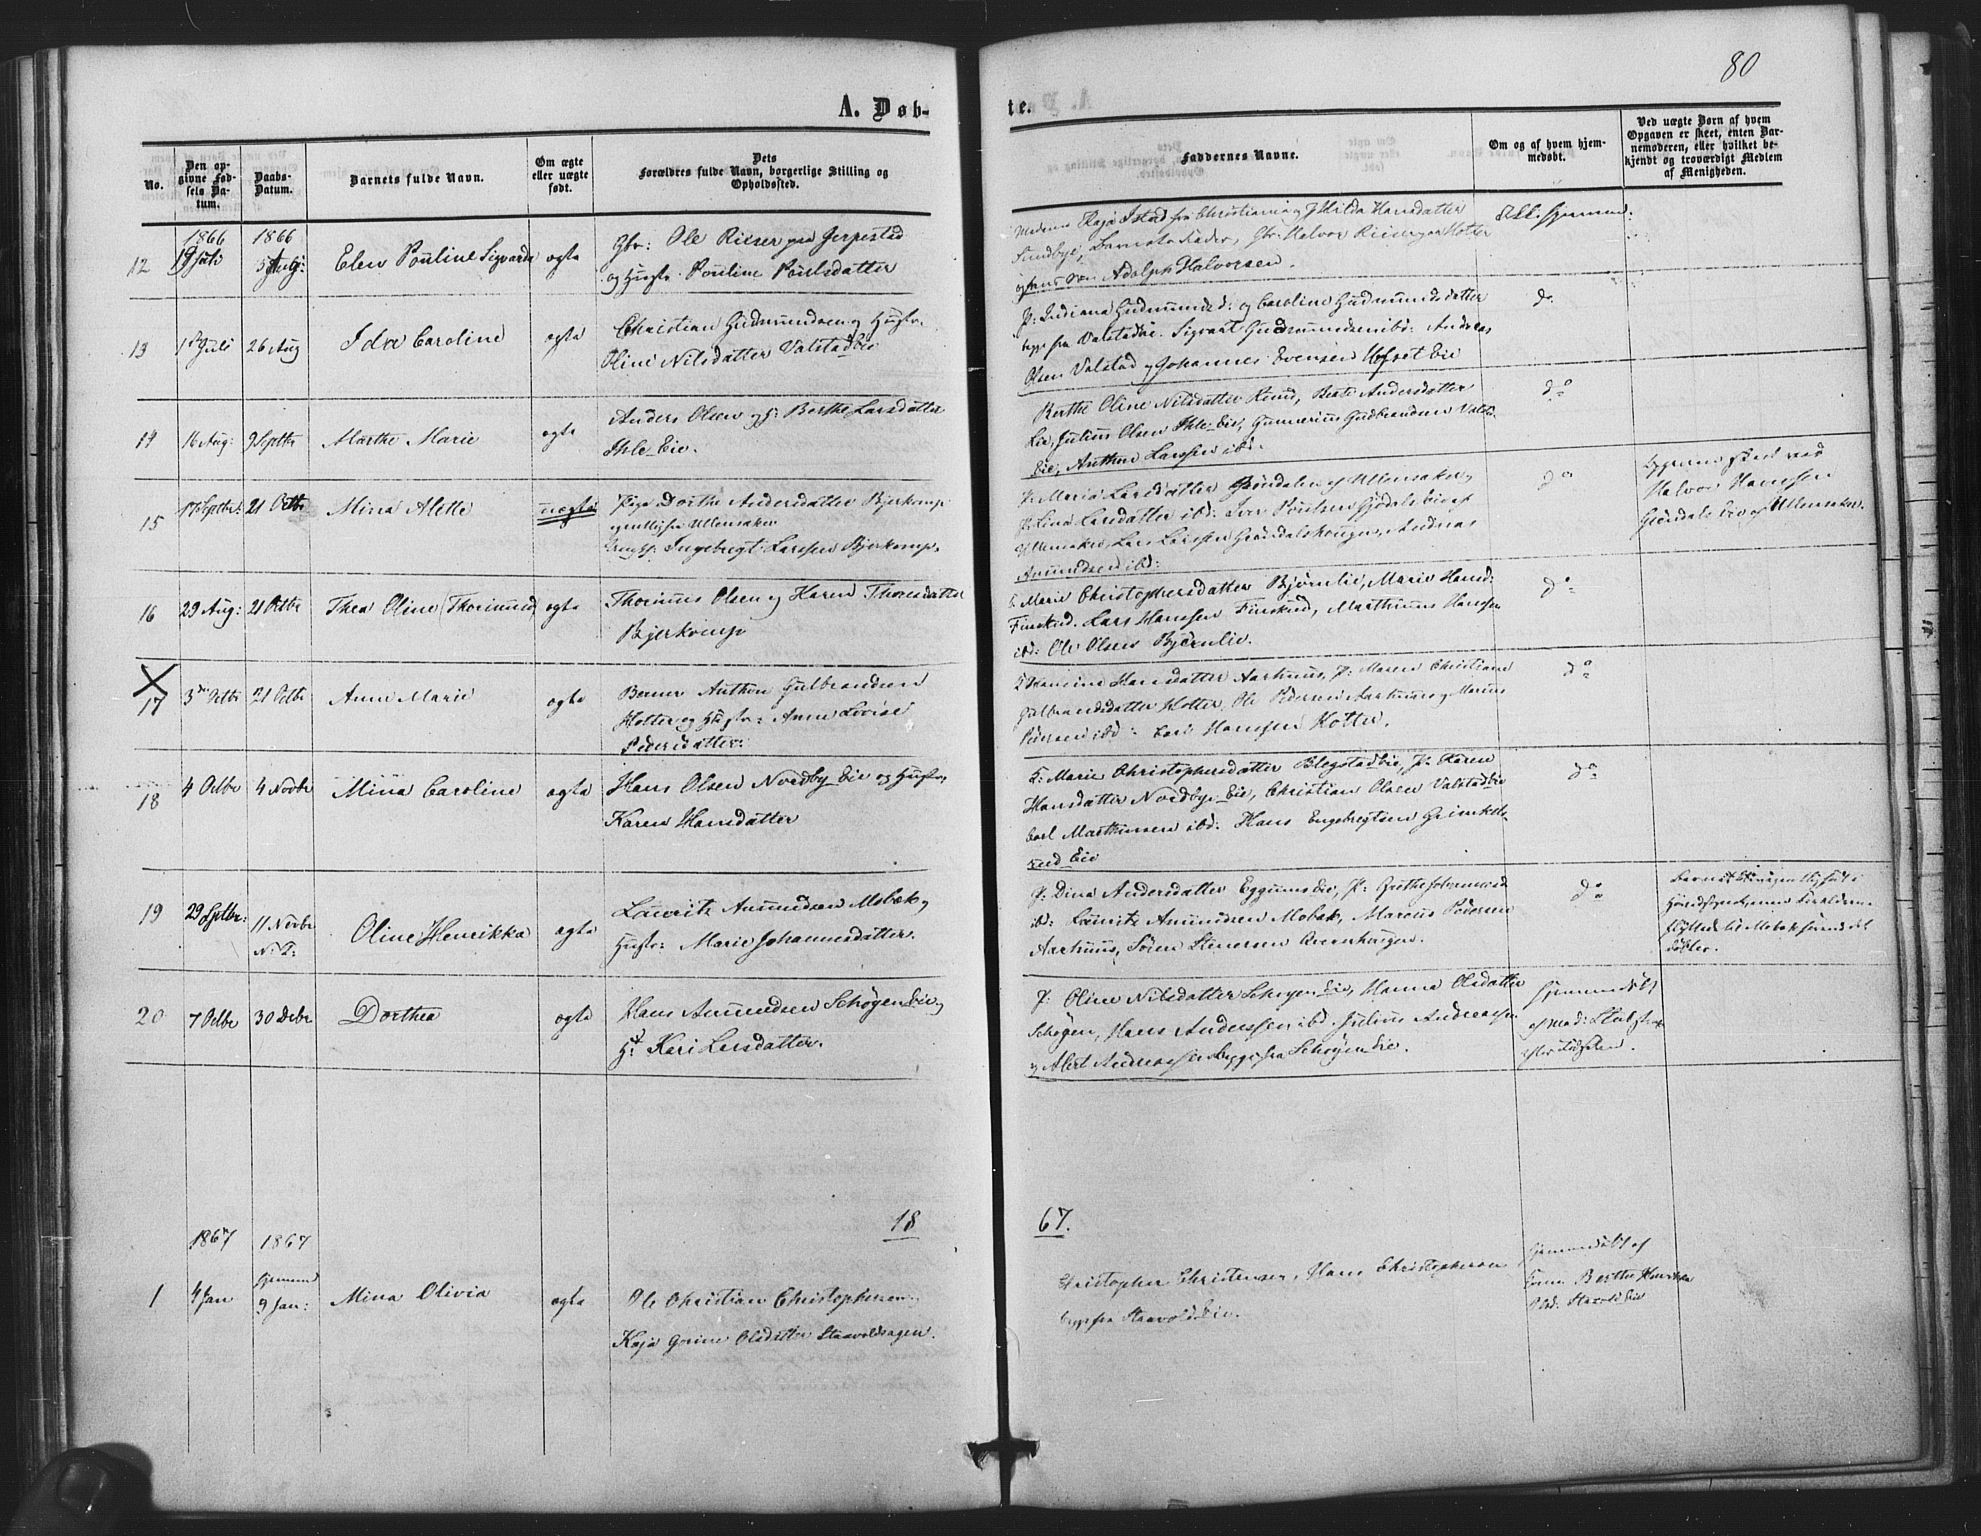 80
A. Døb-
te.
No.
Den op-
givne Fød-
sels Da-
tum.
Daabs-
Datum.
Barnets fulde Navn.
Om ægte
eller uægte
født.
Dets
Forældres fulde Navn, borgerlige Stilling og
Opholdssted.
Faddernes Navne.
Om og af hvem hjem-
medøbt.
Ved uægte Børn af hvem
Opgaven er skeet, enten Bar-
nemoderen, eller hvilket be-
kjendt og troværdigt Medlem
af Menigheden.
1866
1866
12
Juli
5 Aug:
Elen Pouline Sigvarda
ægta
Gbr: Ole Rieser Jerpestad
og Hustr. Pouline Poulsdatter
Kaja Istad fra Christiania Hilda Hansdatter
Sundbye, Barnets Fader, Gbr. Halvor Kotter
og hans Søn Adolph Halvorsen.
13
1 Juli
26 Aug
Ida Caroline
ægta
Christian Gudmundsen og Hustr.
Oline Nilsdatter Valstad Eie
P: Indiana Gudmundsd: og Caroline Gudmundsdatter
begge fra Valstadeie. Sigvart Gudmundsen ibd: Andreas
Olsen Valstad og Johannes Evensen Hofset Eie
do
14
16 Aug:
9 Septbr
Marthe Marie
ægta
Anders Olsen og H: Berthe Larsdatter
Ihle-Eie.
Berthe Oline Nilsdatter Rund, Beate Andersdatter
Eie, Julius Olsen Ihle-Eie, Gunnerius Gudbrandsen Valst-
Eie, Anthon Larssen ibd:
do
15
17 Septbr:
21 Octbr
Mina Alette
uægta
Pige Dorthe Andersdatter Bjerkomp
Ullensaker
Ungk. Ingebregt Larssen Bjerkomp.
P: Maria Larsdatter Grøndalen af Ullensaker,
P: Lina Larsdatter ibd: Iver Poulsen Gjødals Eie af
Ullensaker, Lars Larssen Grøndalshougen, Andreas
Amundsen ibd:
do
Halvor Hanssen
Grøndals Eie af Ullensaker.
16
29 Aug:
21 Octbr
Thea Oline (Thorinius)
ægta
Thorinius Olsen og Karen Thorsdatter
Bjerkomp
Marie Christophersdatter Bjørnlie, Marie Hansd:
Finstad. Lars Hanssen Finstad, Marthinius Hanssen
ibd: Ole Olsen Bjørnlie.
do
17
3 Octbr
21 Octbr
Anne Marie
ægta
Berner Anthon Gulbrandsen
Kotter og Hustr: Anne Lovise
Pedersdatter:
Hansine Hansdatter Aarhuus, P: Maren Christiane
Gulbrandsdatter Kotter, Ole Pedersen Aarhuus og Marius
Pedersen ibd: Carl Hanssen Kotter.
do
18
4 Octbr
4 Novbr
Mina Caroline
ægta
Hans Olsen Nordby Eie og Hustr,
Karen Hansdatter
K: Marie Christophersdatter Blegstadeie, P: Karen
Hansdatter Nordbye Eie, Christian Olsen Valstadeie
Carl Marthinsen ibd: Hans Engebregtsen Grimkels-
rud Eie
do
19
29 Septbr:
11 Novbr
N. T:
Oline Henrikka
ægta
Lauritz Amundsen Mobæk,
Hustr: Marie Johannesdatter.
P: Dina Andersdatter Eggums Eie, P: Grethe Johannesd
ibd: Lauritz Amundsen Mobæk, Marcus Pedersen
Aarhuus, Sören Stenersen
do
20
7 Octbr
30 Debr
Dorthea
ægta
Hans Amundsen Schøgen Eie,
H: Kari Larsdatter.
P: Oline Nilsdatter Schøgen Eie, Hanna Olsdatter
Schøgen, Hans Anderssen ibd. Julius Andreassen
og Alert Andreassen begge fra Schøgen Eie.
Hjemmedøbt
18
67.
1867
1867
1
4 Jan
Hjemmed
9 Jan:
Mina Olivia
ægta
Ole Christian Christophersen.
Kaja Gorine Olsdatter Staavoldhagen.
Christopher Christensen, Hans Christophersen
begge fra Staavold Eie.
Hjemmedøbt af
Berthe Henrikka